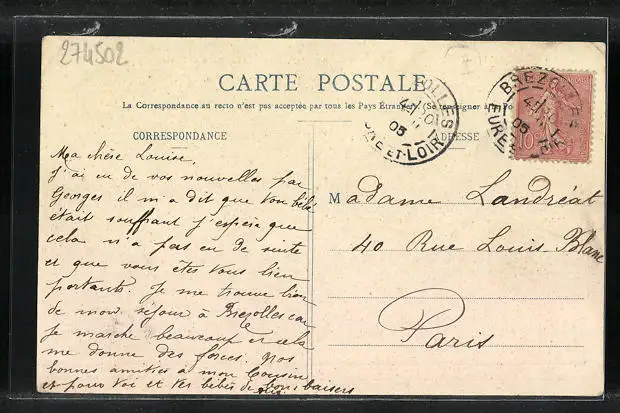 274502
CARTE POSTALE
La Correspondance au recto n'est pas acceptée par tous les Pays Étrangers (Se renseigner à la Po
CORRESPONDANCE
ADRESSE
Ma chère Louise,
J'ai eu de vos nouvelles par
Georges il m'a dit que ton bébé
était souffrant j'espère que
cela n'a pas eu de suite
et que vous êtes tous bien
portants. Je me trouve bien
de mon séjour à Brezolles car
je marche beaucoup et cela
me donne des forces. Nos
bonnes amitiés à mon Cousin
et pour toi et tes bébés de bons baisers
Madame Landréat
40 Rue Louis Blanc
Paris
BREZOLLES
EURE
05
10
OLLES
05
EURE-ET-LOIR